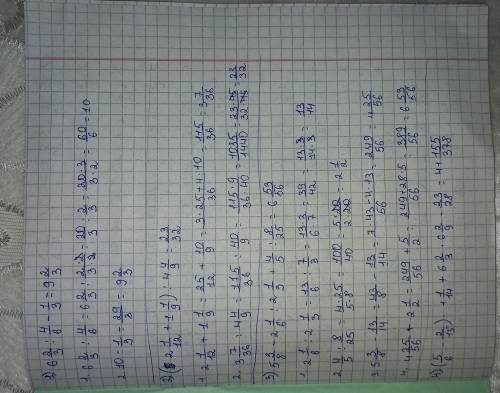 1) 6 2/3 : 4/6 - 1/3 = 9 2/3
1. 6 2/3 : 4/6 = 6 2/3 : 2·2/3·2 = 20/3 : 2/3 = 20·3/3·2 = 60/6 = 10
2. 10 - 1/3 = 29/3 = 9 2/3
2) (2 1/12 + 1 1/9) : 4 4/9 = 23/32
1. 2 1/12 + 1 1/9 = 25/12 + 10/9 = 3·25+4·10/36 = 115/36 = 3 7/36
2. 3 7/36 : 4 4/9 = 115/36 : 40/9 = 115·9/36·40 = 1035/1440 = 23·45/32·45 = 23/32
3) 5 3/8 - 2 1/6 : 2 1/3 + 4/5 : 8/25 = 6 53/56
1. 2 1/6 : 2 1/3 = 13/6 : 7/3 = 13·3/6·7 = 39/42 = 13·3/14·3 = 13/14
2. 4/5 : 8/25 = 4·25/5·8 = 100/40 = 5·20/2·20 = 2 1/2
3. 5 3/8 - 13/14 = 43/8 - 13/14 = 7·43-4·13/56 = 249/56 = 4 25/56
4. 4 25/56 + 2 1/2 = 249/56 + 5/2 = 249+28·5/56 = 389/56 = 6 53/56
4) (5/6 - 2/15) · 1 1/14 + 6 2/3 : 6 2/9 23/28 = 4 + 155/378